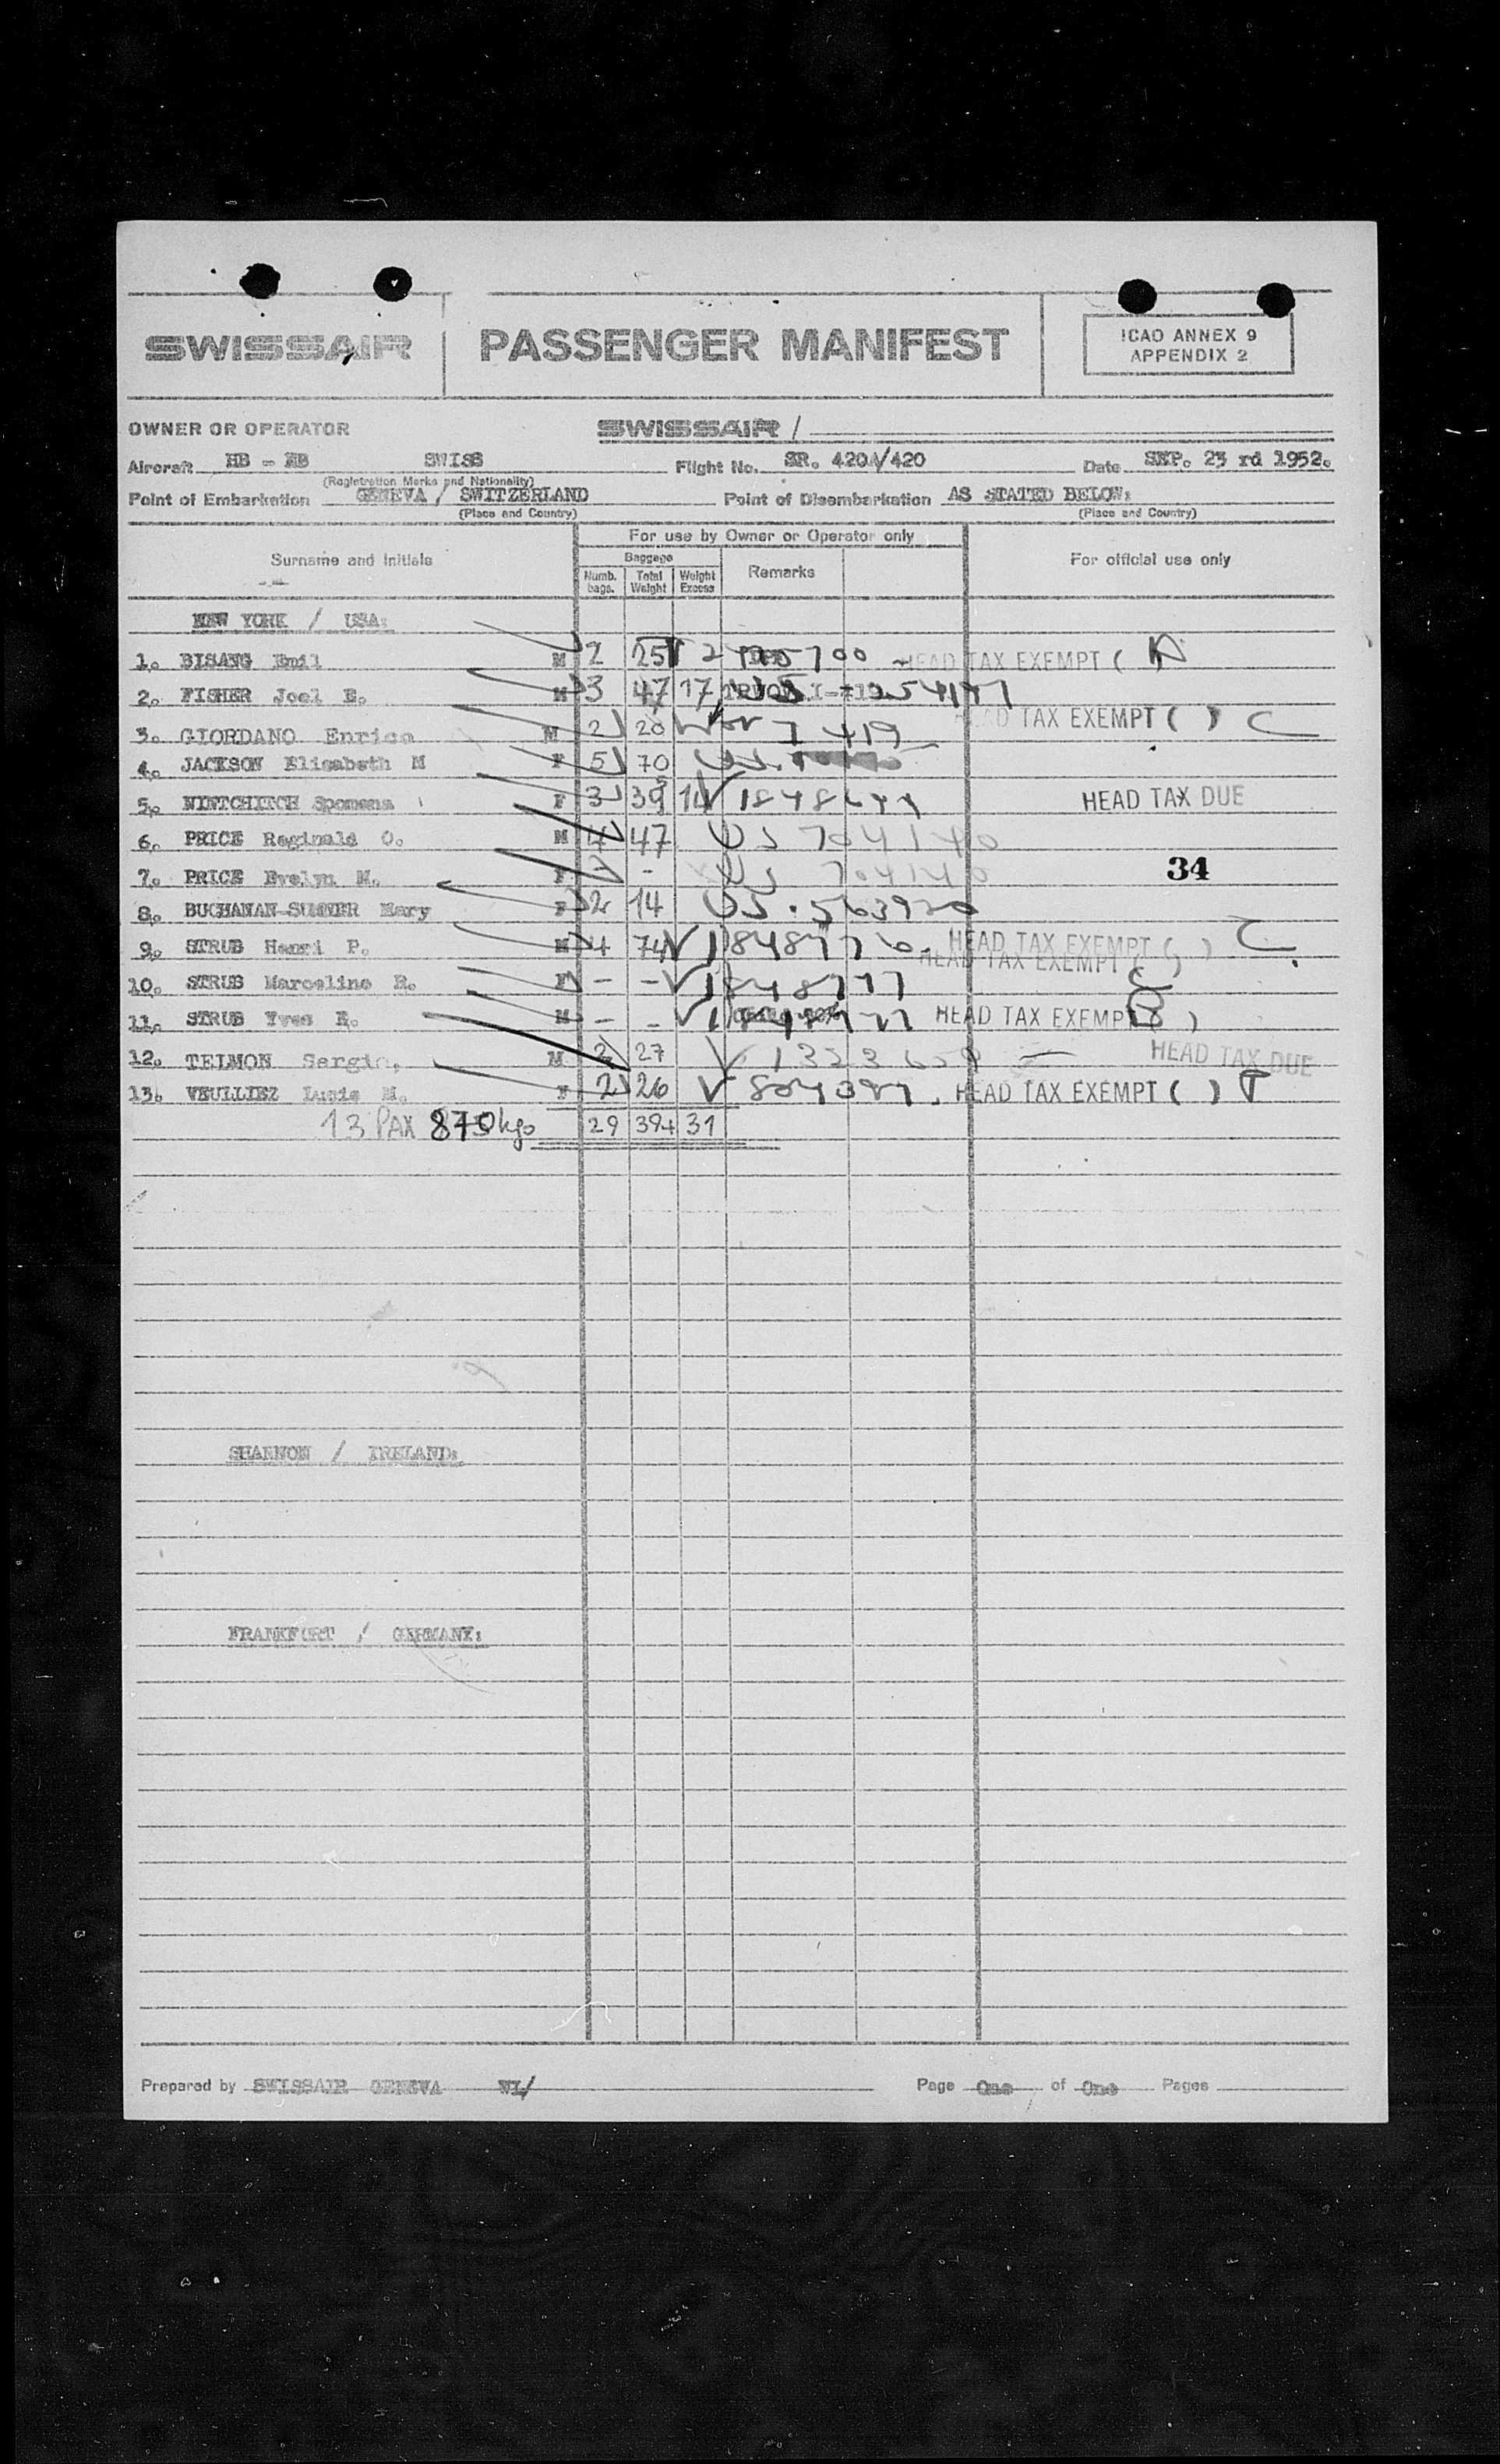 SWISSAIR PASSENGER MANIFEST ICAO ANNEX 9
APPENDIX 2
OWNER OR OPERATOR SWISSAIR /
Aircraft HB - SWISS Flight No. SR. 420A/420 Date SEP. 23 rd 1952.
(Registration Marks and Nationality)
Point of Embarkation GENEVA / SWITZERLAND Point of Disembarkation AS STATED BELOW:
(Place and Country) (Place and Country)
For use by Owner or Operator only
Surname and Initials Baggage Remarks For official use only
Numb. bags. Total Weight Weight Excess
NEW YORK / USA:
1. BISANG Emil M 2 25 HEAD TAX EXEMPT ( )
2. FISHER Joel E. M 3 47 17
3. GIORDANO Enrico M 2 20 HEAD TAX EXEMPT ( ) C
4. JACKSON Elisabeth M F 5 70
5. NINTCHITCH Spomena F 3 39 14 HEAD TAX DUE
6. PRICE Reginald O. M 4 47 US 704140
7. PRICE Evelyn M. F - - US 704140 34
8. BUCHANAN-SUMNER Mary F 2 14 US. 563920
9. STRUB Henri P. M 4 74 HEAD TAX EXEMPT ( ) C
HEAD TAX EXEMPT ( )
10. STRUB Marceline R. F - -
11. STRUB Yves R. M - - HEAD TAX EXEMPT ( )
12. TELMON Sergio, M 2 27 1323659 HEAD TAX DUE
13. VEULLIEZ Lucie M. F 2 26 HEAD TAX EXEMPT ( ) T
13 PAX 870 kgs 29 394 31
SHANNON / IRELAND:
FRANKFURT / GERMANY:
Prepared by SWISSAIR GENEVA WL/ Page One of One Pages